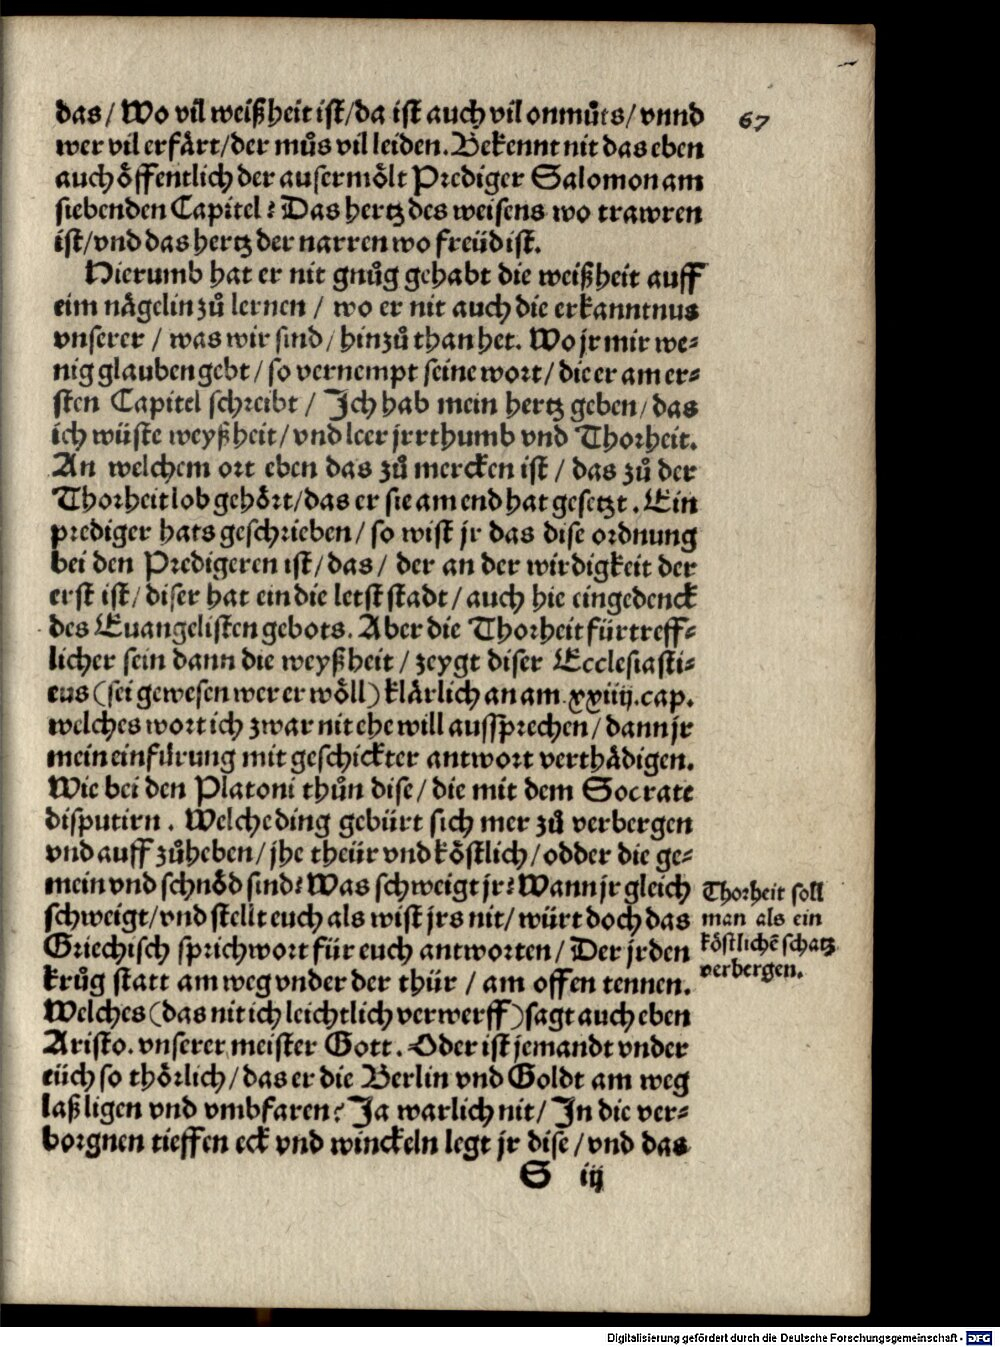 67
das / Wo vil weißheit ist / da ist auch vil onmůts / vnnd
wer vil erfärt / der můs vil leiden. Bekennt nit das eben
auch öffentlich der auserwölt Prediger Salomon am
siebenden Capitel? Das hertz des weisens wo trawren
ist / vnd das hertz der narren wo freüd ist.
Hierumb hat er nit gnůg gehabt die weißheit auff
eim nägelin zů lernen / wo er nit auch die erkanntnus
vnserer / was wir sind / hinzů than het. Wo jr mir we⸗
nig glauben gebt / so vernempt seine wort / die er am er⸗
sten Capitel schreibt / Ich hab mein hertz geben / das
ich wüste weyßheit / vnd leer jrrthumb vnd Thorheit.
An welchem ort eben das zů mercken ist / das zů der
Thorheit lob gehört / das er sie am end hat gesetzt. Ein
prediger hats geschrieben / so wist jr das dise ordnung
bei den Predigeren ist / das / der an der wirdigkeit der
erst ist / diser hat ein die letst stadt / auch hie eingedenck
des Euangelisten gebots. Aber die Thorheit fürtreff⸗
licher sein dann die weyßheit / zeygt diser Ecclesiasti⸗
cus (sei gewesen wer er wöll) klärlich an am .xxiiij. cap.
welches wort ich zwar nit ehe will aussprechen / dann jr
mein einfürung mit geschickter antwort verthädigen.
Wie bei den Platoni thůn dise / die mit dem Socrate
disputirn. Welche ding gebürt sich mer zů verbergen
vnd auff zůheben / jhe theür vnd köstlich / odder die ge⸗
mein vnd schnöd sind? Was schweigt jr? Wann jr gleich
schweigt / vnd stellt euch als wist jrs nit / würt doch das
Griechisch sprichwort für euch antworten / Der jrden
krůg statt am weg vnder der thür / am offen tennen.
Welches (das nit ich leichtlich verwerff) sagt auch eben
Aristo. vnserer meister Gott. Oder ist jemandt vnder
eüch so thörlich / das er die Berlin vnd Goldt am weg
laß ligen vnd vmbfaren? Ja warlich nit / In die ver⸗
borgnen tieffen eck vnd winckeln legt jr dise / vnd das
S iij
Thorheit soll
man als ein
köstlichē schatz
verbergen.
Digitalisierung gefördert durch die Deutsche Forschungsgemeinschaft - DFG